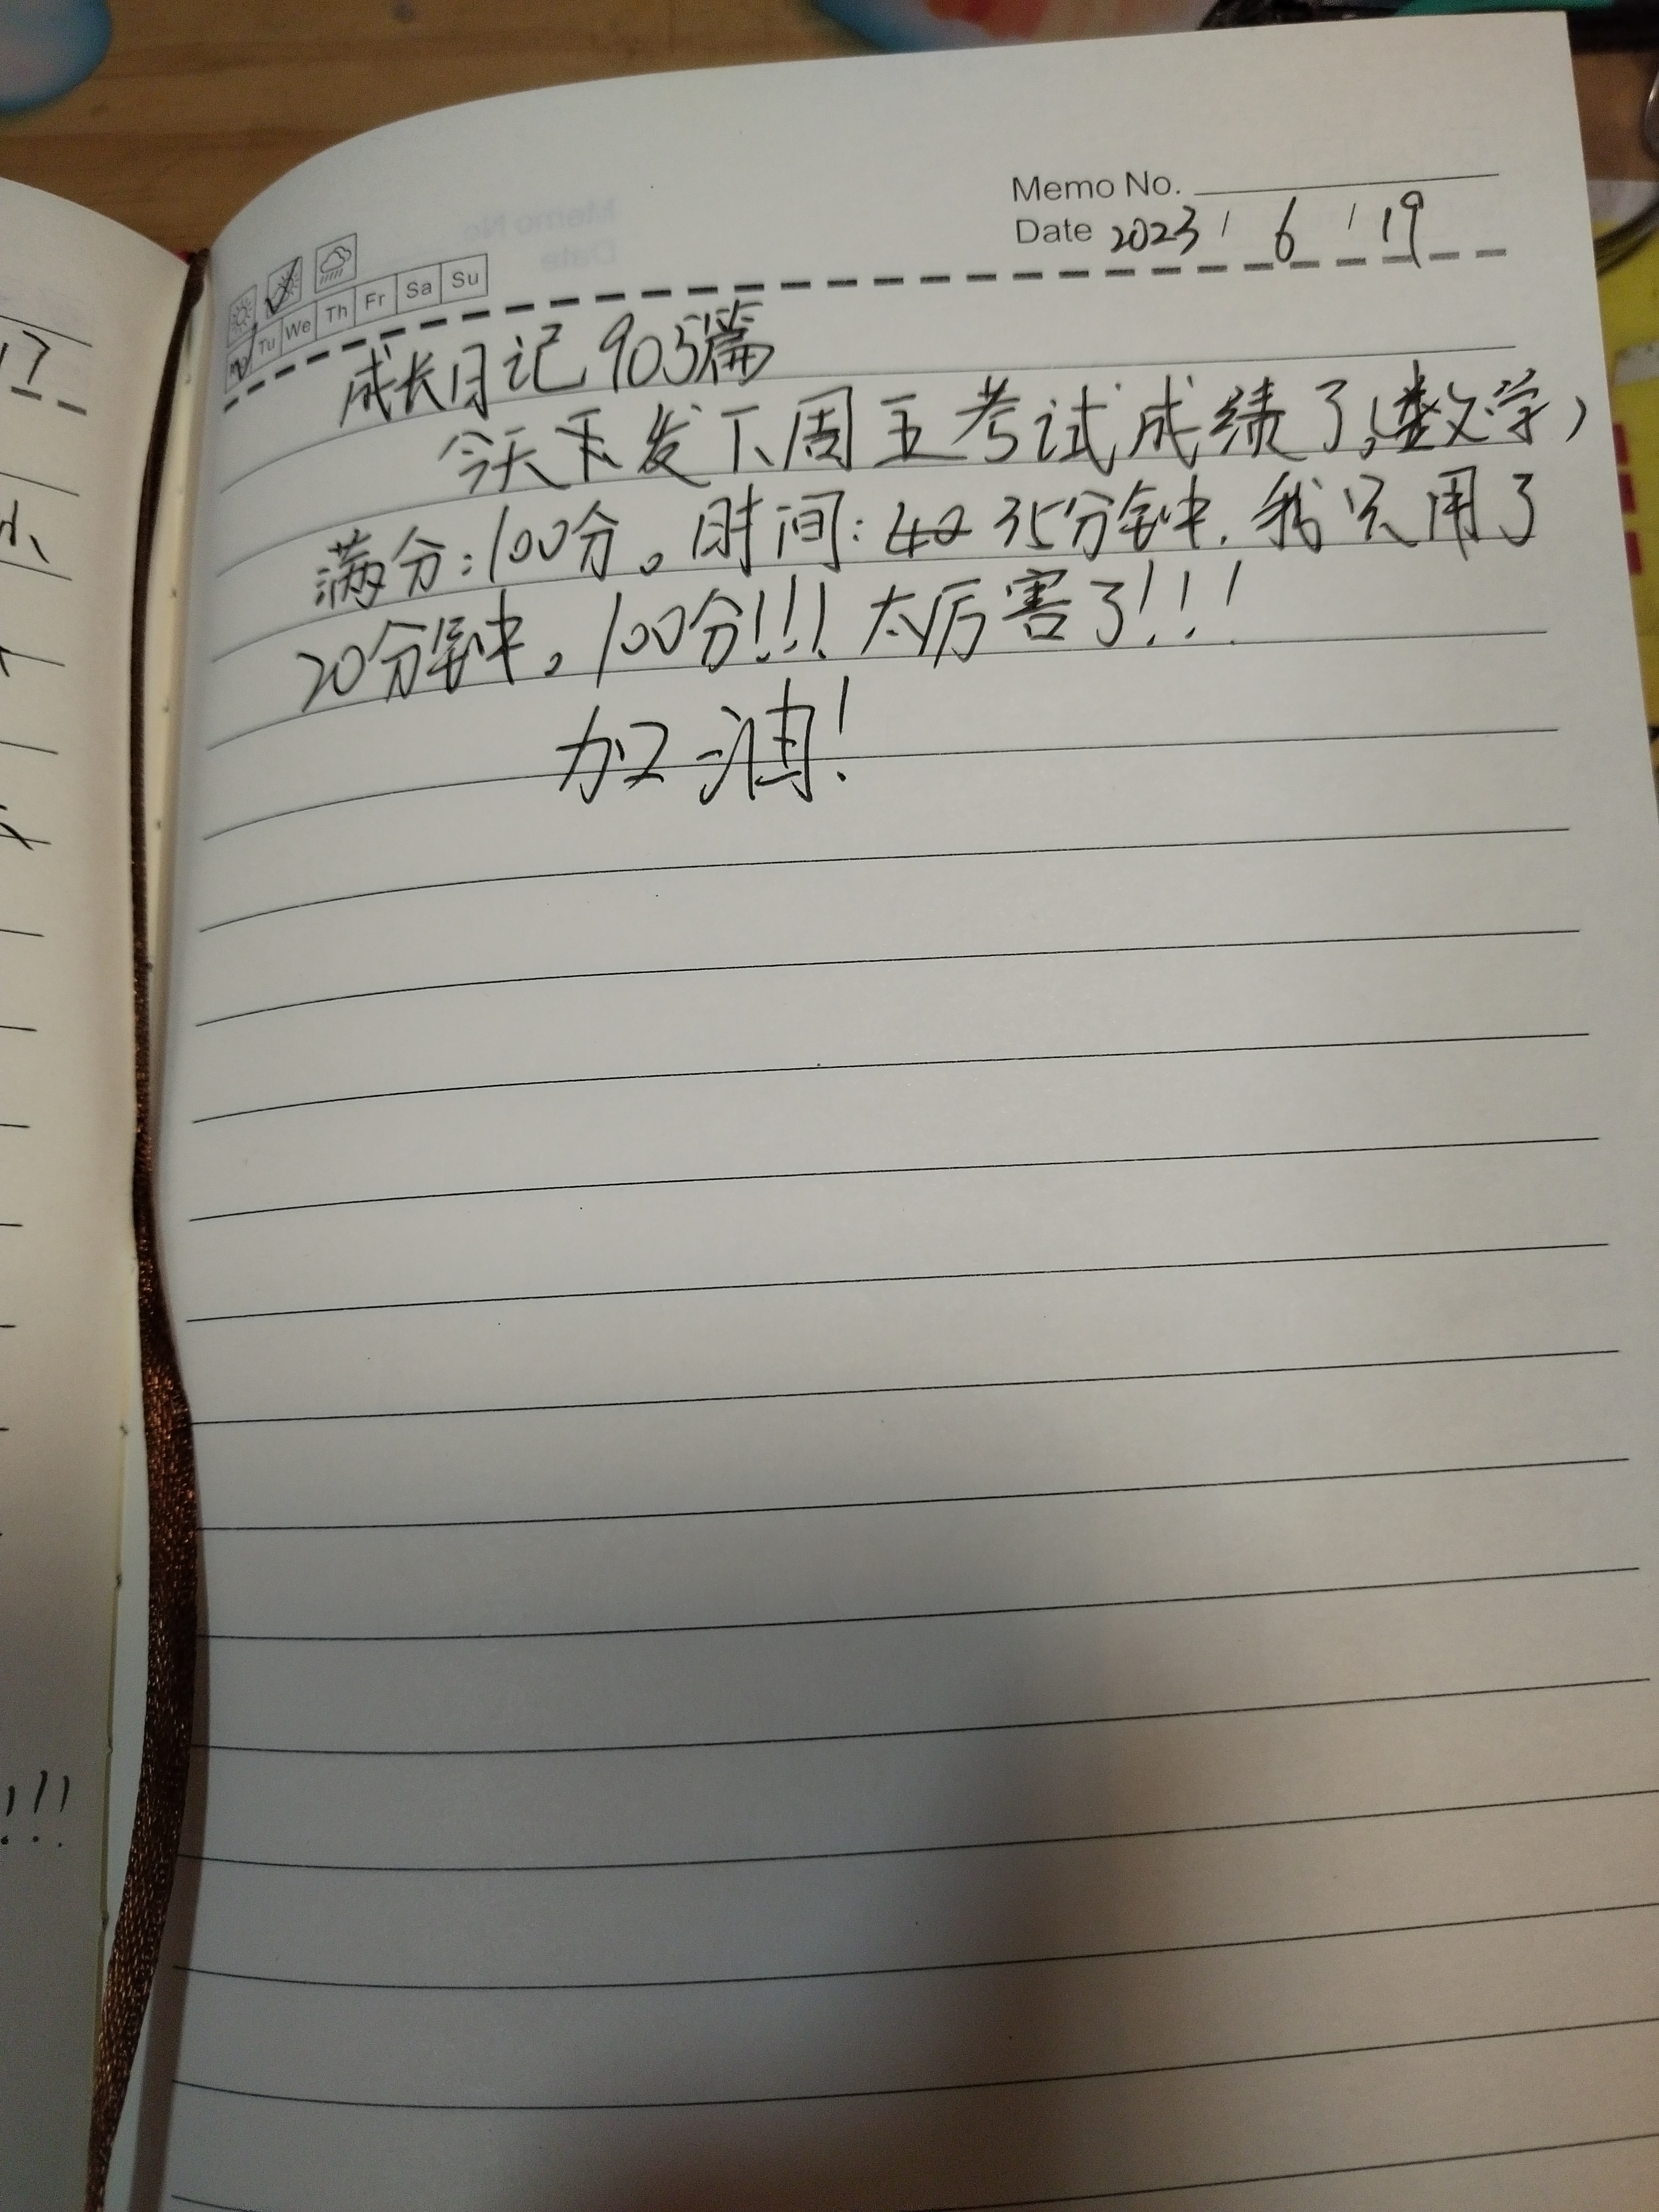 Memo No.
Date 2023 / 6 / 19
Mo Tu We Th Fr Sa Su
成长日记903篇
今天发下周五考试成绩了,(数学)
满分:100分。时间:40 35分钟.我只用了
20分钟。100分!!!太厉害了!!!
加油!
17
!!!